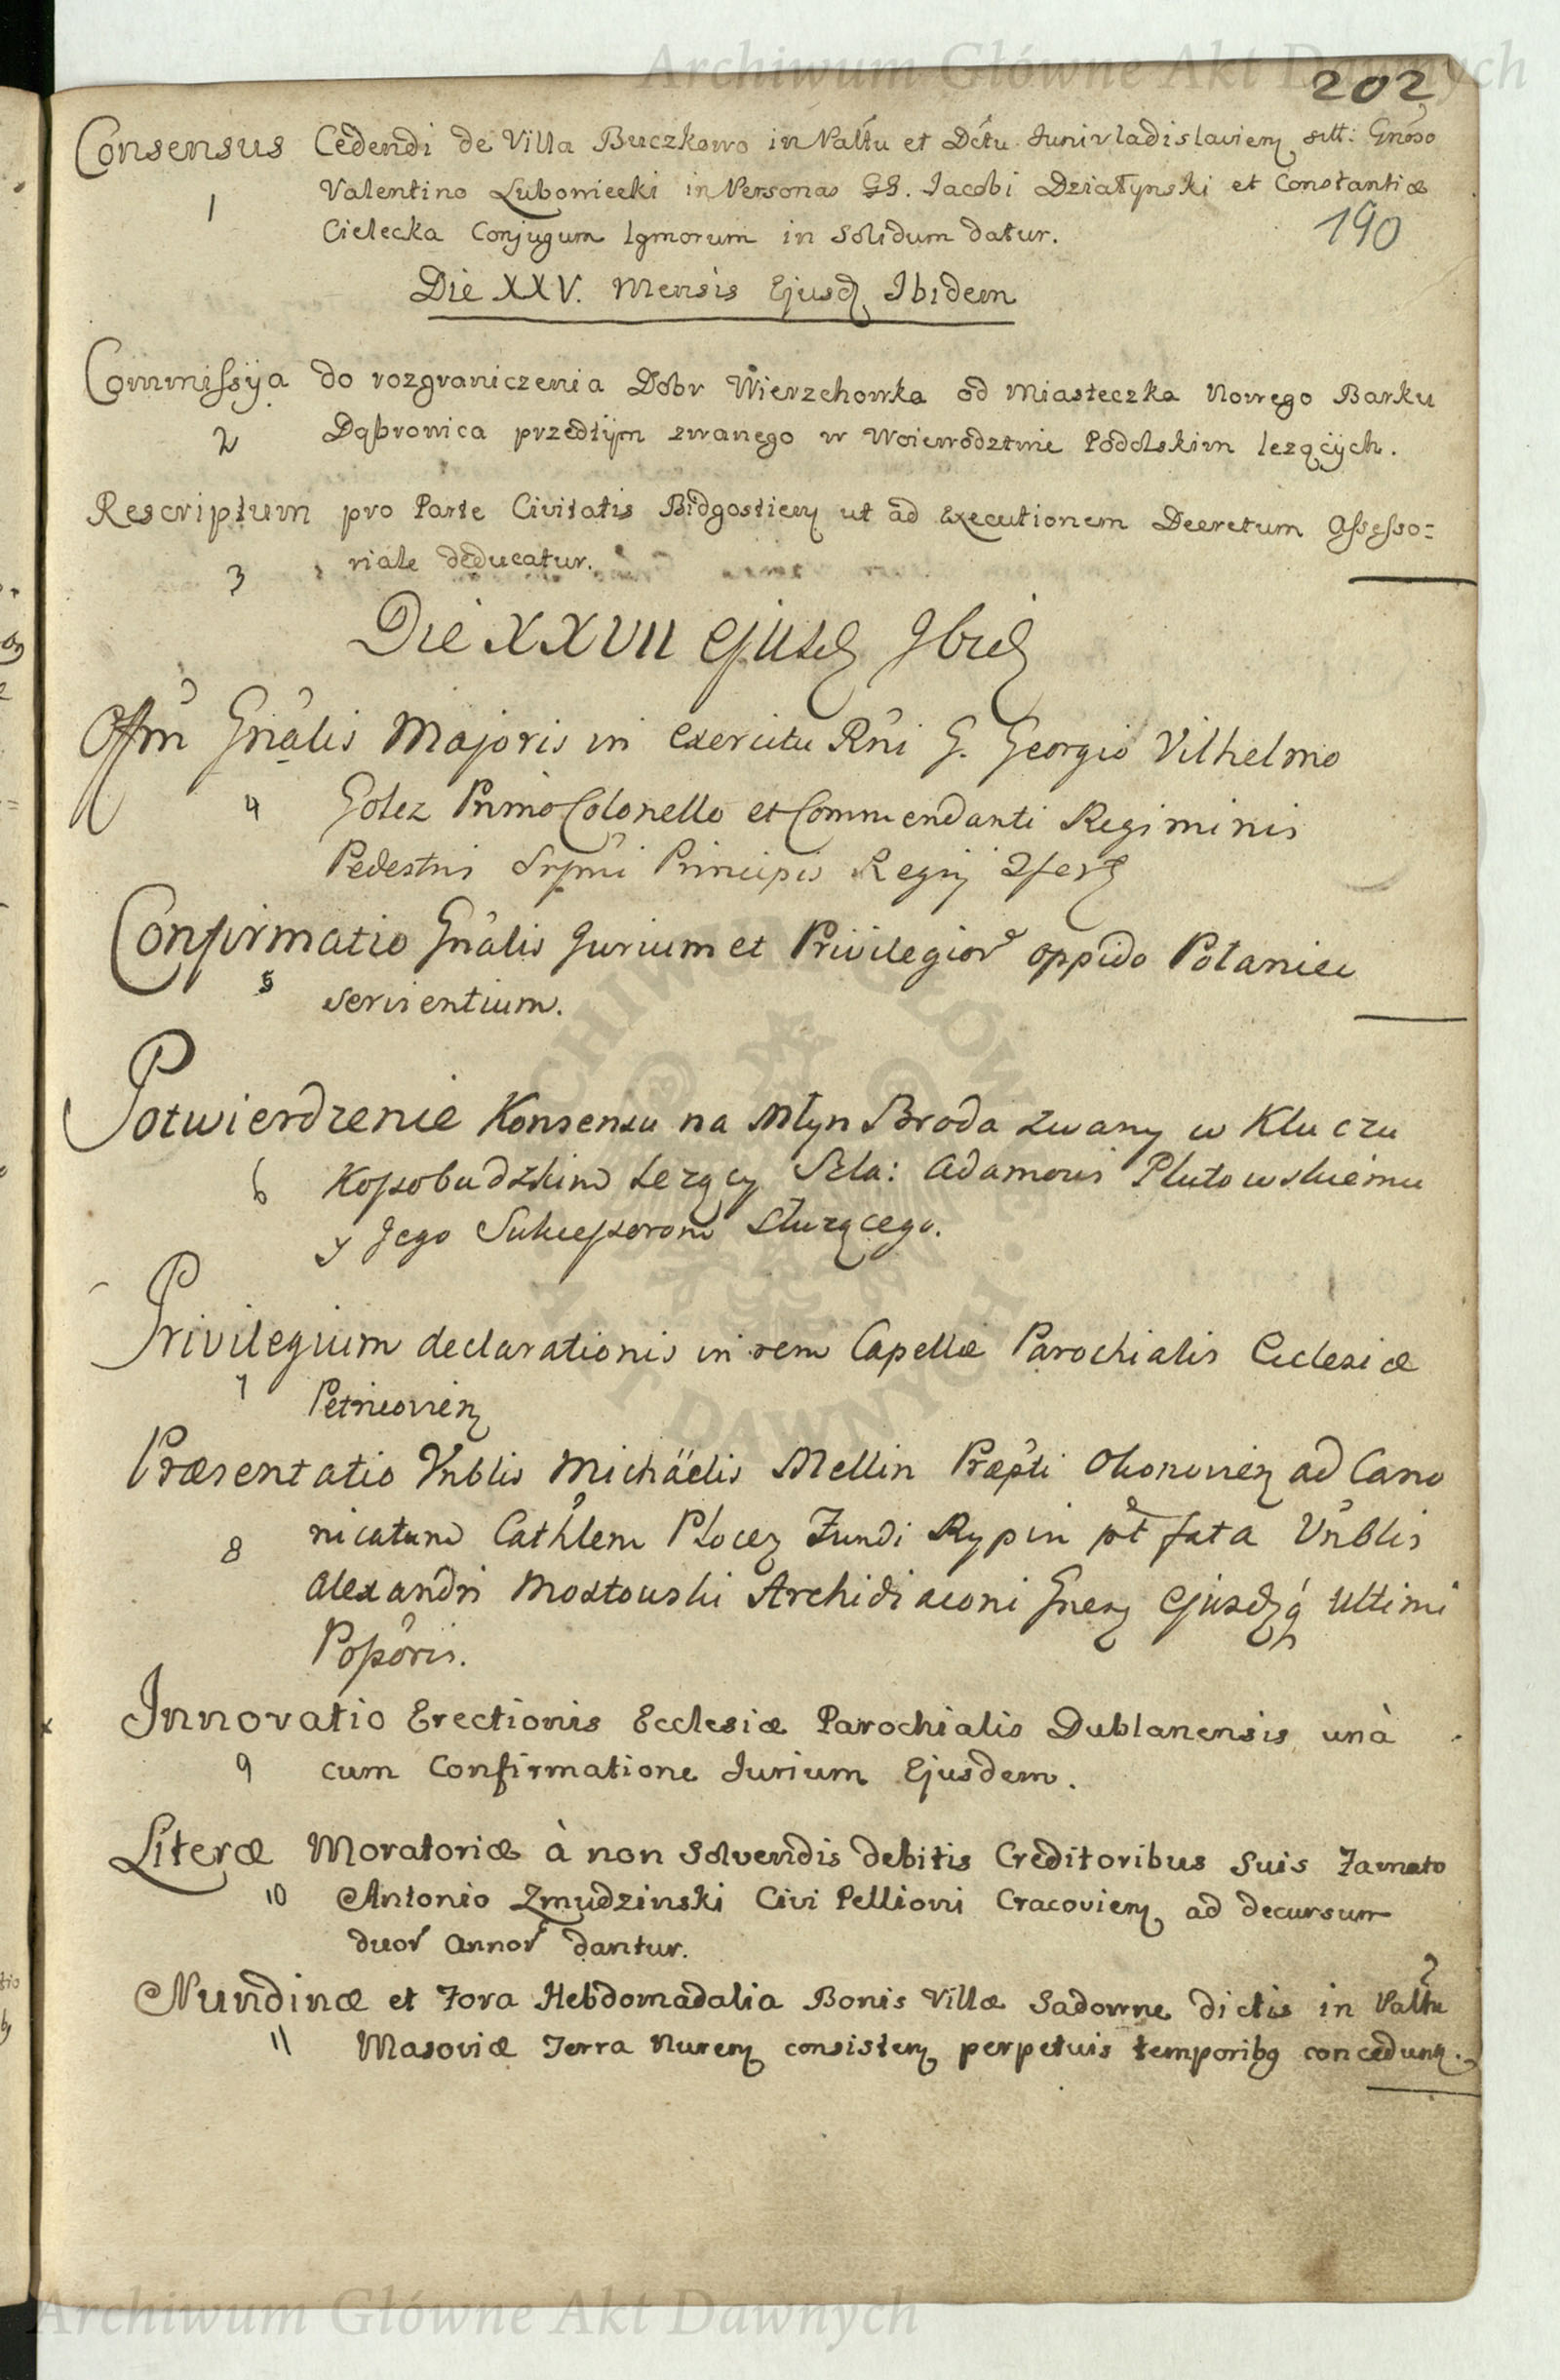 Archiwum Główne Akt Dawnych
202
Consensus Cedendi de Villa Buczkowo in Paltu et Dctu Junivladislavien sitt: Gnoso
1 Valentino Lubowiecki in Personas GG. Jacobi Działynski et Constantiæ
Cielecka Conjugum Igmorum in Solidum datur.
190
Die XXV. Mensis Ejusd Ibidem
Commissya do rozgraniczenia Dobr Wierzchowka od Miasteczka Nowego Barku
2 Dąbrowica przedtym zwanego w Woiewodztwie Podolskim lezących.
Rescriptum pro Parte Civitatis Bidgostien ut ad Executionem Decretum Assesso=
3 riale deducatur.
Die XXVII ejusd Ibid
Offm Gnalis Majoris in exercitu Rni G. Georgio Vilhelmo
4 Goltz Primo Colonello et Commendanti Regiminis
Pedestris Principis Regij
Confirmatio Gnalis Jurium et Privilegior oppido Połaniec
5 servientium.
Potwierdzenie Konsensu na Młyn Broda zwany w Kluczu
6 Lezący Szla: Adamowi Plutowskiemu
y Jego Sukcessorom słuzącego.
Privilegium declarationis in rem Capellæ Parochialis Ecclesiæ
7 Petricovien
Præsentatio Vnblis Michäelis Mellin Præpti Okonovien ad Cano
8 nicatum Cathlem Plocen Fundi Rypin pt fata Vnblis
Alexandri Mostowski Archidiaconi Gnen Ejusdq ultimi
Possoris.
Innovatio Erectionis Ecclesiæ Parochialis Dublanensis unà
9 cum Confirmatione Jurium Ejusdem.
Literæ Moratoriæ à non Solvendis debitis Creditoribus Suis Famato
10 Antonio Zmudzinski Civi Pellioni Cracovien ad decursum
duor annor dantur.
Nundinæ et Fora Hebdomadalia Bonis Villæ Sadowne dictis in Paltu
11 Masoviæ Terra Nuren consisten perpetuis temporibq concedunt.
Archiwum Główne Akt Dawnych